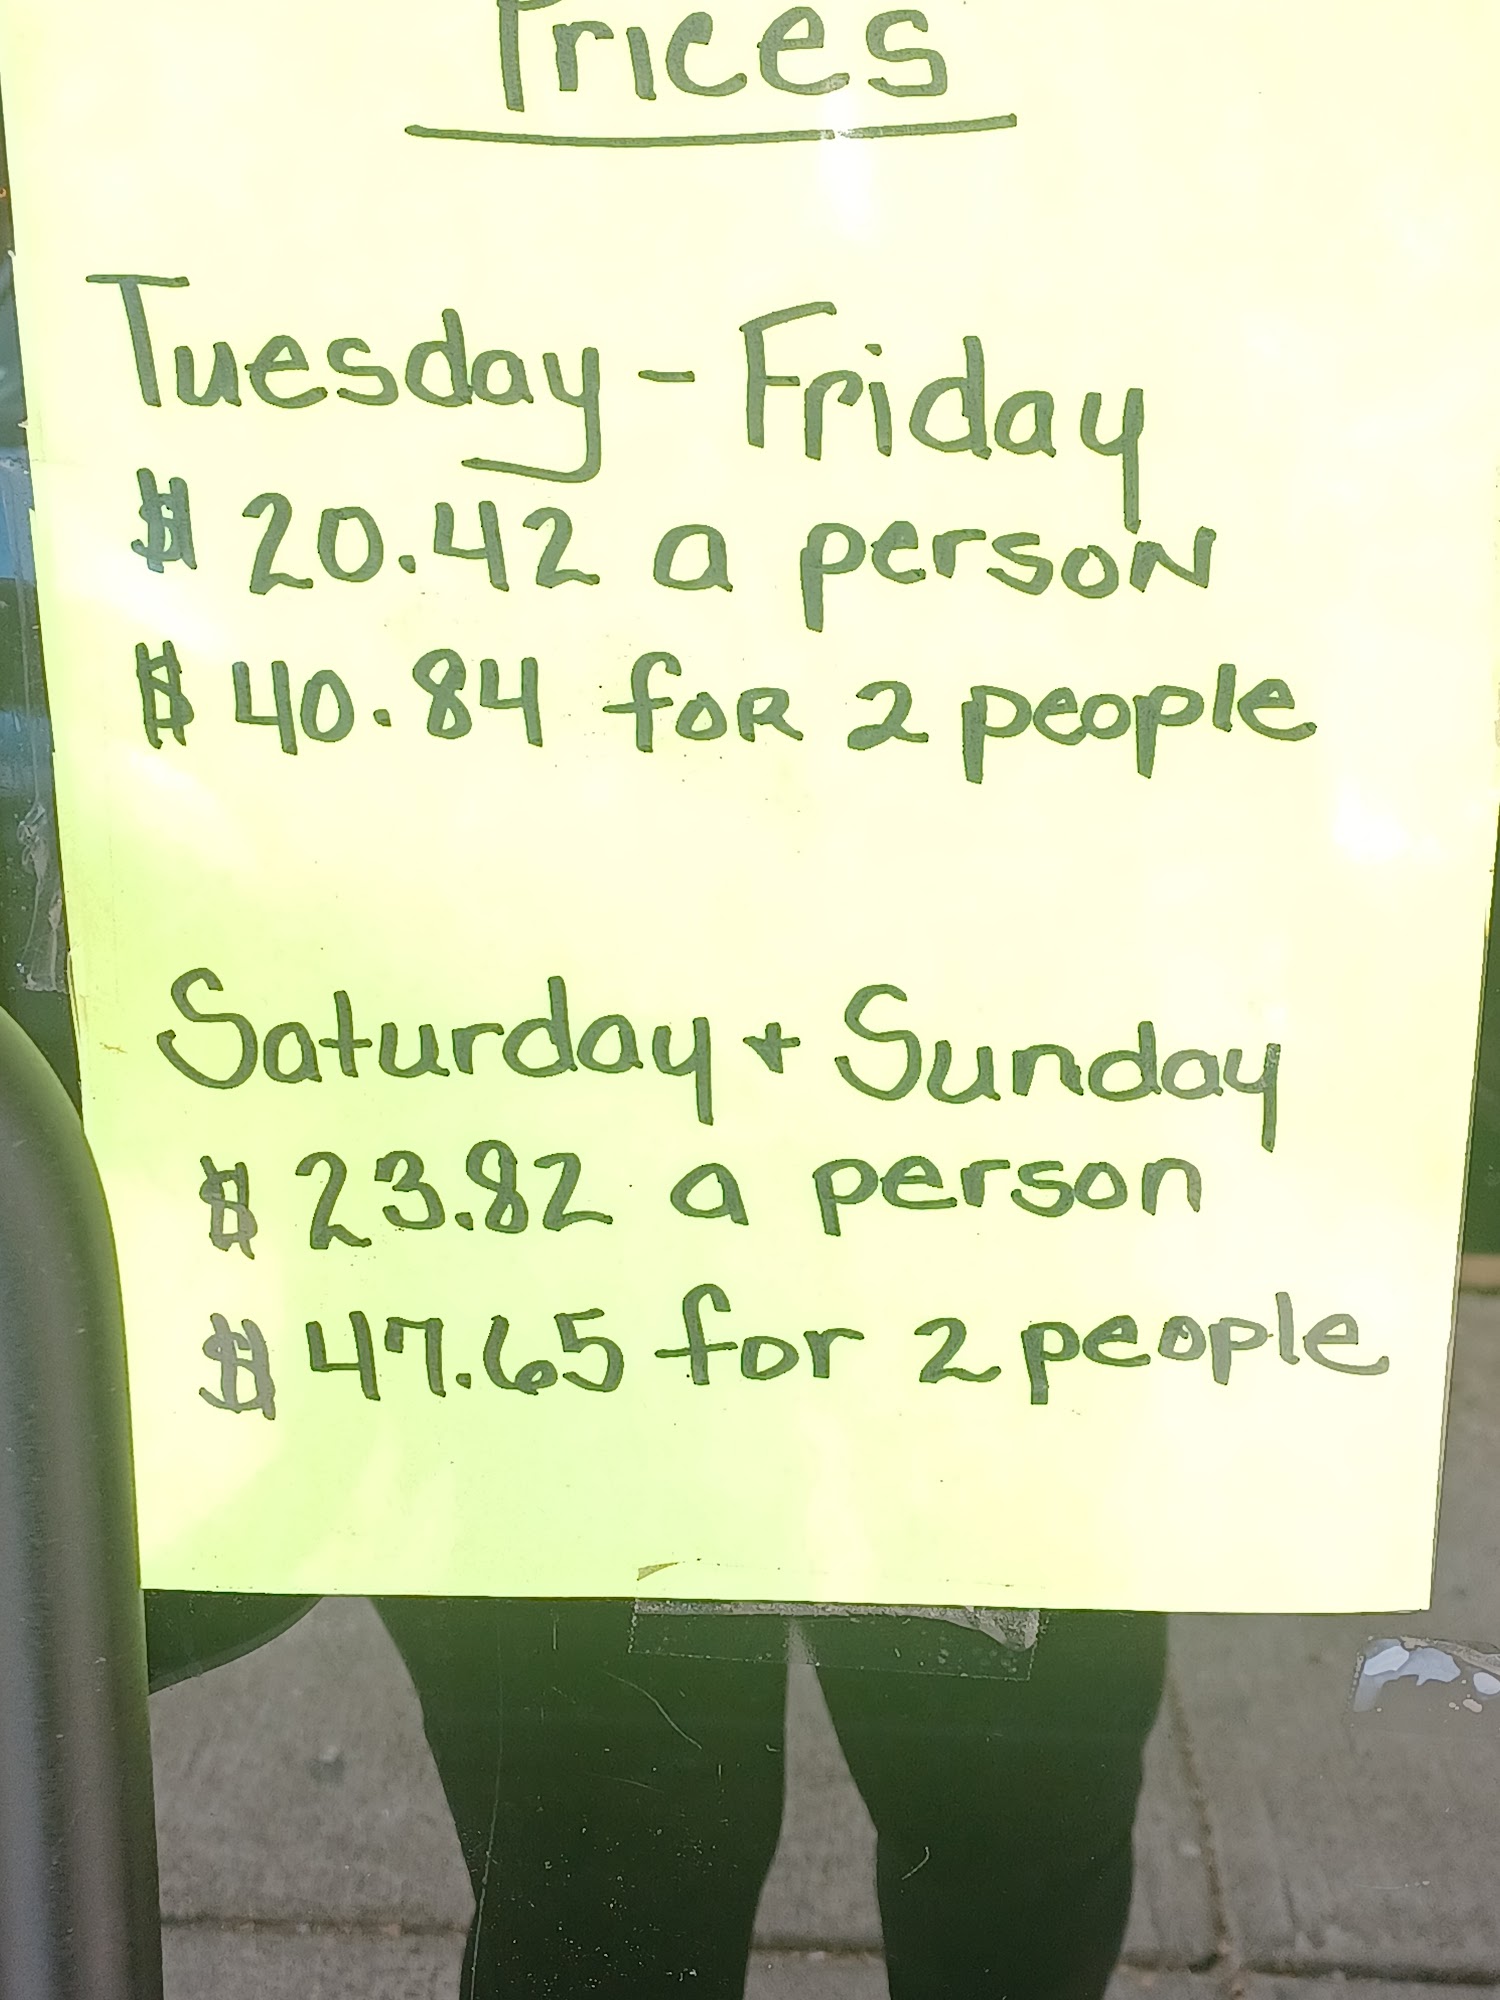 Prices
Tuesday - Friday
$ 20.42 a person
$ 40.84 for 2 people
Saturday + Sunday
$ 23.82 a person
$ 47.65 for 2 people